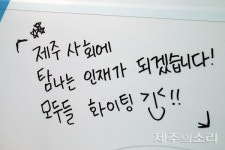 「제주 사회에
탐나는 인재가 되겠습니다!
모두들 화이팅 긴!!」
제주의소리